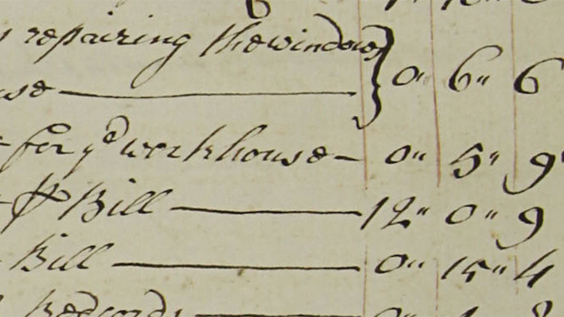 repairing the windows } 0" 6" 6
use
for ye workhouse 0" 5" 9
⅌ Bill 12" 0" 9
Bill 0" 15" 4